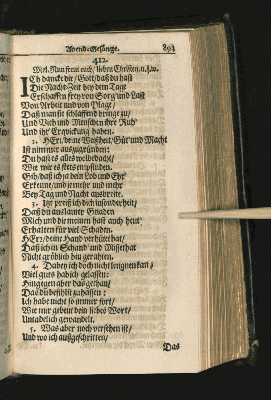 Abend-Gesänge. 893
412.
Mel. Nun freut euch, lieben Christen, u.s.w.
ICh dancke dir / Gott / daß du hast
Die Nacht-Zeit bey dem Tage
Erschaffen frey von Sorg und Last
Von Arbeit und von Plage /
Daß man sie schlaffend bringe zu /
Und Vieh und Menschen ihre Ruh
Und ihr Erqvickung haben.
2. HErr / deine Weißheit / Güt und Macht
Ist nimmer auszugründen:
Du hast es alles wolbedacht /
Wie wir es stets empfinden.
Gib / daß ich ja dein Lob und Ehr
Erkenne / und je mehr und mehr
Bey Tag und Nacht ausbreite.
3. Itzt preiß ich dich insonderheit /
Daß du aus lauter Gnaden
Mich und die meinen hast auch heut
Erhalten für viel Schaden.
HErr / deine Hand verhütet hat /
Daß ich in Schand und Missethat
Nicht gröblich bin gerahten.
4. Dabey ich doch nicht leugnen kan /
Viel guts hab ich gelassen:
Hingegen aber das gethan /
Das du befihlst zu hassen:
Ich habe nicht so immer fort /
Wie mir gebeut dein liebes Wort /
Untadelich gewandelt.
5. Was aber noch versehen ist /
Und wo ich außgeschritten /
Das